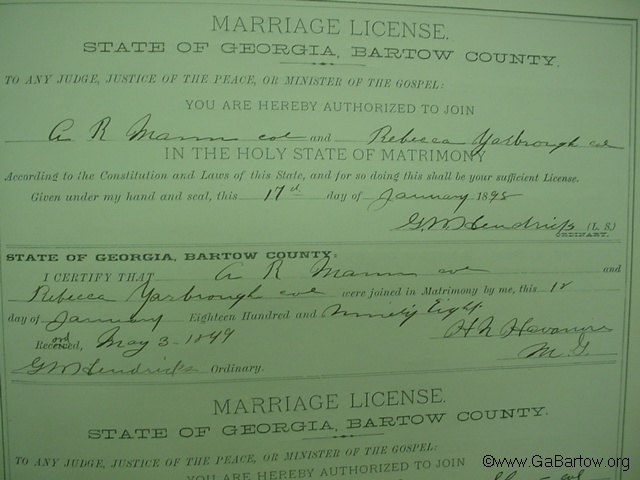 MARRIAGE LICENSE.
STATE OF GEORGIA, BARTOW COUNTY.
TO ANY JUDGE, JUSTICE OF THE PEACE, OR MINISTER OF THE GOSPEL:
YOU ARE HEREBY AUTHORIZED TO JOIN
A R Mann col and Rebecca Yarbrough col
IN THE HOLY STATE OF MATRIMONY
According to the Constitution and Laws of this State, and for so doing this shall be your sufficient License.
Given under my hand and seal, this 17d day of January 1898
G.W. Hendricks (L. S.)
ORDINARY.
STATE OF GEORGIA, BARTOW COUNTY:
I CERTIFY THAT A R Mann col and
Rebecca Yarbrough col were joined in Matrimony by me, this 18
day of January Eighteen Hundred and Ninety Eight
Recorded, May 3-1899 H N
M G.
G W Hendricks Ordinary.
MARRIAGE LICENSE.
STATE OF GEORGIA, BARTOW COUNTY.
TO ANY JUDGE, JUSTICE OF THE PEACE, OR MINISTER OF THE GOSPEL:
YOU ARE HEREBY AUTHORIZED TO JOIN
©www.GaBartow.org